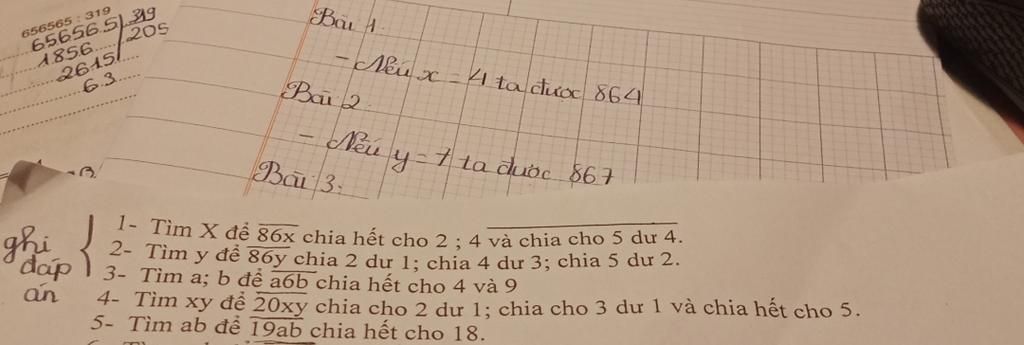 656565 : 319
65656.5 319
1856 205
2615
63
Bài 1.
- Nếu x = 4 ta được 864
Bài 2
- Nếu y = 7 ta được 867
Bài 3.
ghi đáp án
1- Tìm X để 86x chia hết cho 2 ; 4 và chia cho 5 dư 4.
2- Tìm y để 86y chia 2 dư 1; chia 4 dư 3; chia 5 dư 2.
3- Tìm a; b để a6b chia hết cho 4 và 9
4- Tìm xy để 20xy chia cho 2 dư 1; chia cho 3 dư 1 và chia hết cho 5.
5- Tìm ab để 19ab chia hết cho 18.